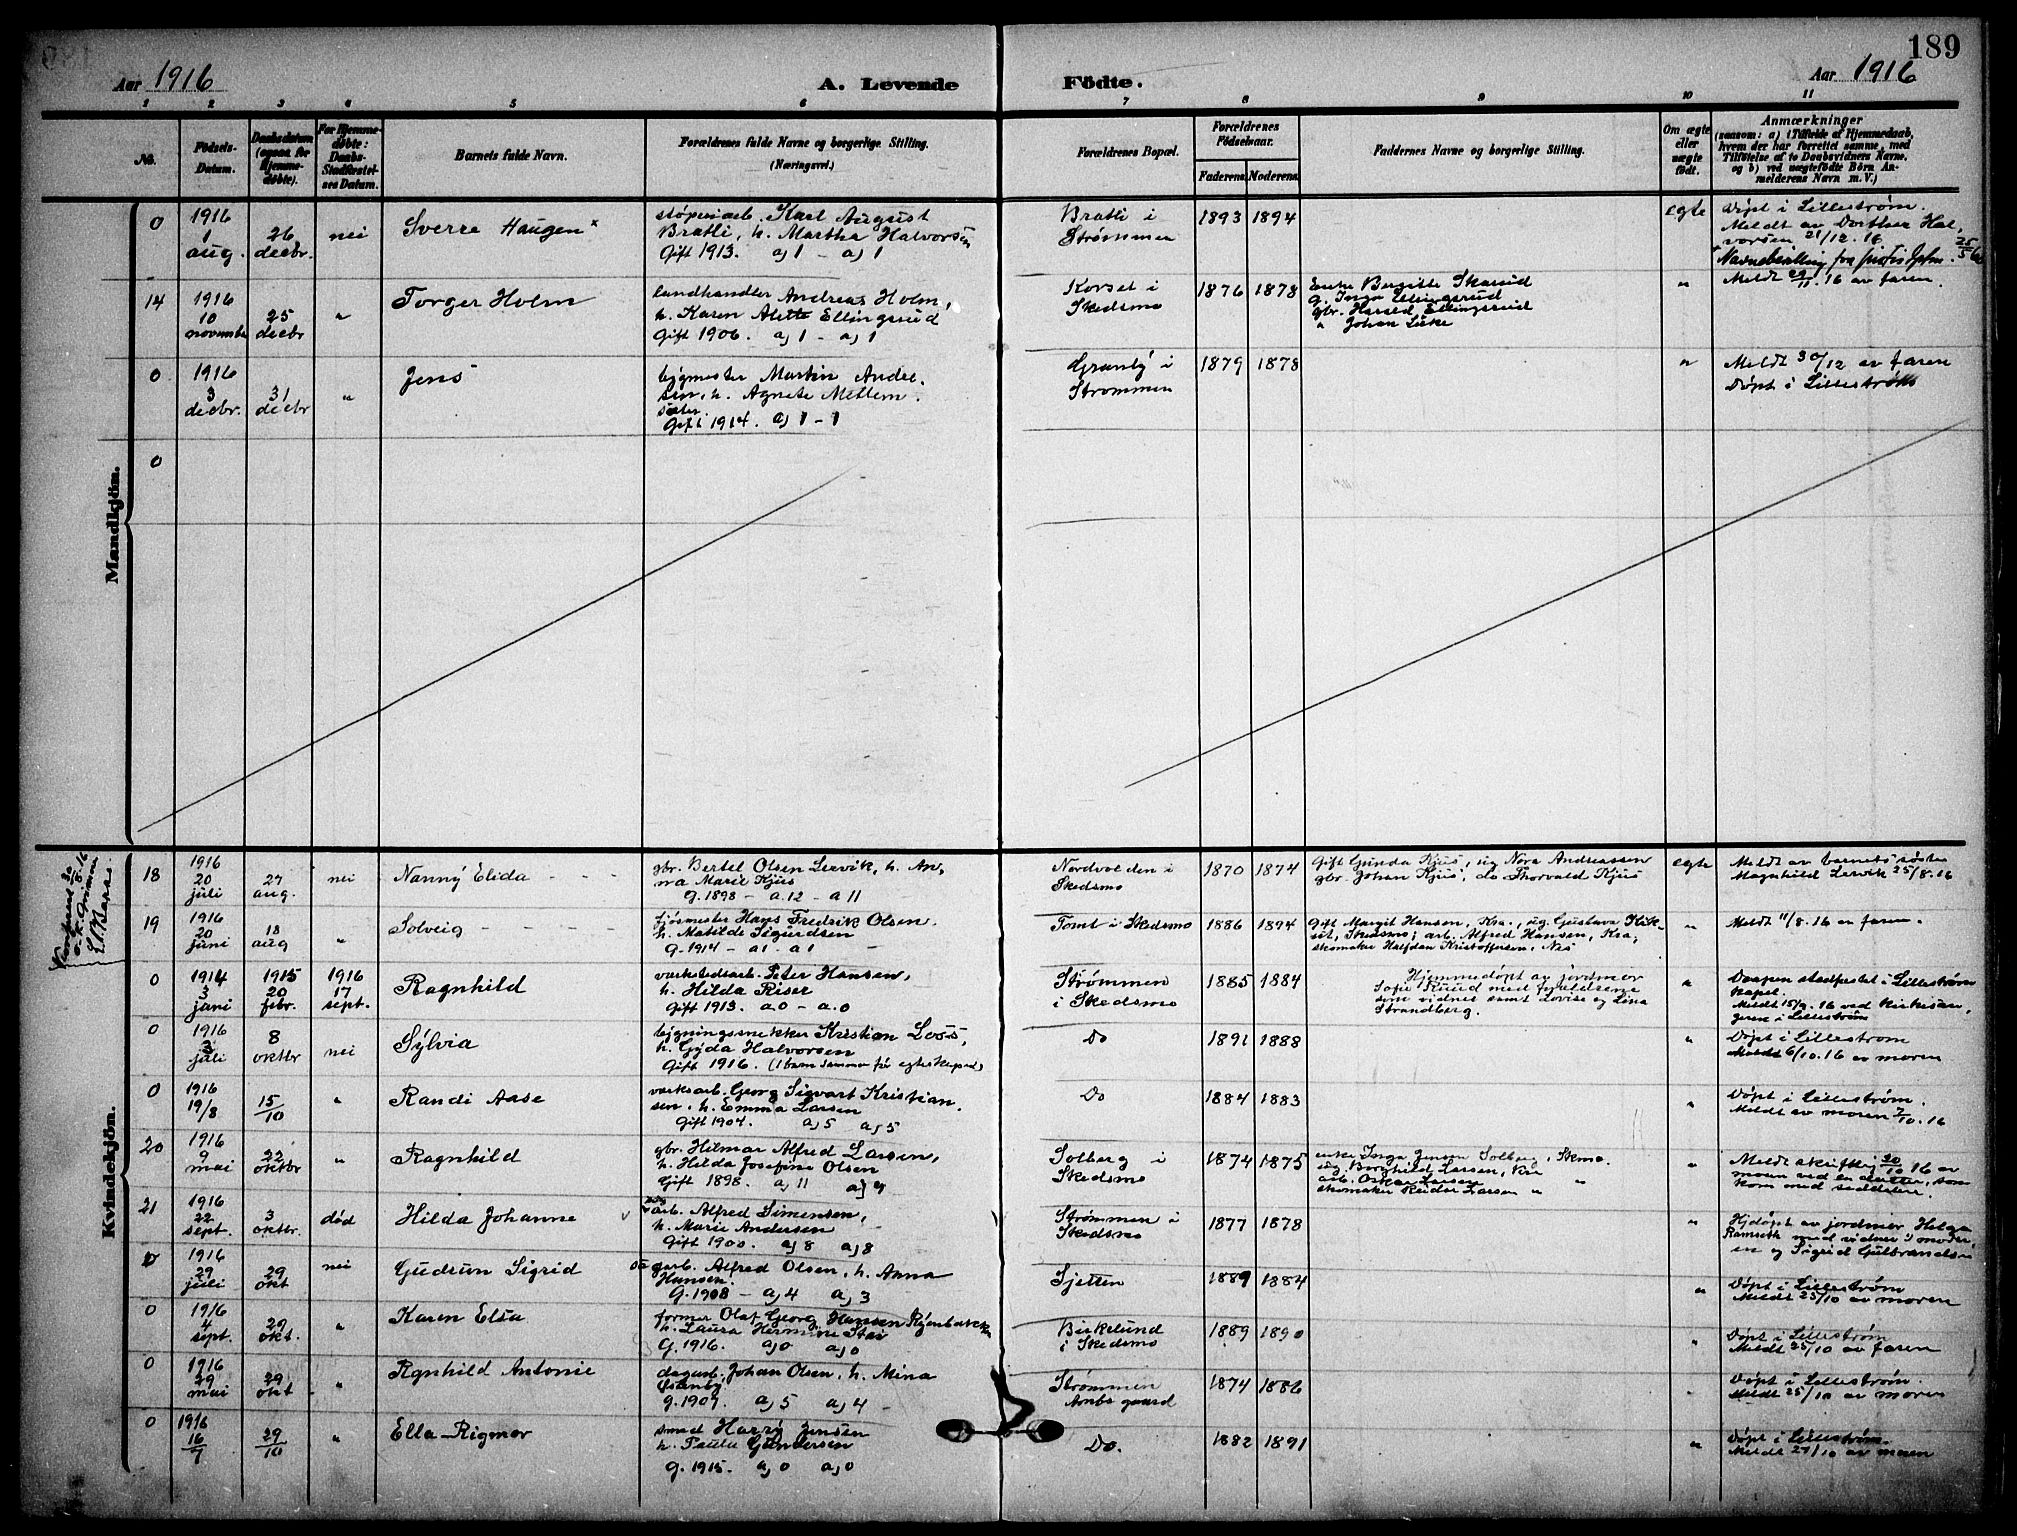 189
Aar 1916
A. Levende Födte.
Aar 1916
1 2 3 4 5 6 7 8 9 10 11
No.
Fødsels-Datum.
Daabsdatum (ogsaa for Hjemme-døbte).
For Hjemme-døbte: Daabs-Stadfæstel-ses Datum.
Barnets fulde Navn.
Forældrenes fulde Navne og borgerlige Stilling.
(Næringsvei.)
Forældrenes Bopæl.
Forældrenes Fødselsaar.
Faderens. Moderens.
Faddernes Navne og borgerlige Stilling.
Om ægte eller uægte født.
Anmærkninger
(saasom: a) i Tilfælde af Hjemmedaab,
hvem der har forrettet samme, med
Tilføielse af to Daabsvidners Navne,
og b) ved uægtefødte Børn An-
melderens Navn m. V.)
Mandkjön.
0 1916 1 aug. 26 decbr. nei Sverre Haugen x
støperiarb. Karl August
Bratli, h. Martha Halvorsen
Gift 1913. a) 1 - a) 1
Bratli i
Strømmen
1893 1894 egte
Døpt i Lillestrøm.
Meldt av Dorthea Hal,
vorsen 21/12.16
14 1916 10 november 25 decbr " Torger Holm
landhandler Andreas Holm,
h. Karen Alette Ellingsrud
Gift 1906. a) 1 - a) 1
Korset i
Skedsmo
1876 1878
Enke Bergitte Skarud
g. Inga Ellingsrud
gbr. Harald Ellingsrud
" Johan Lieke
" Meldt 29/11.16 av faren.
0 1916 3 decbr. 31 decbr " Jens
bygmester Martin Andre,
sen, h. Agnete Mellem.
sæter.
Gift 1914. a) 1 - 1
Granly i
Strømmen
1879 1878
" Meldt 30/12 av faren
Døpt i Lillestrøm
0
Kvindekjön.
18 1916 20 juli 27 aug. nei Nanny Elida
gbr. Bertel Olsen Lervik, h. An,
na Marie Kjus
g. 1898 - a. 12 - a 11
Nordvolden i
Skedsmo
1870 1874
Gift Gunda Kjus, ug Nora Andreassen
gbr. Johan Kjus, Do Thorvald Kjus
egte
Meldt av barnets søster
Magnhild Lervik 25/8.16
19 1916 20 juni 18 aug " Solveig
fjøsmester Hans Fredrik Olsen.
h. Matilde Sigurdsen
g. 1914 - a 1 - a 1
Tomt i Skedsmo
1886 1894
Gift Margit Hansen, Kra., ug. Gustava
Skedsmo; arb. Alfred Hansen, Kra,
skomaker Halfdan Kristoffersen, Nes
" Meldt 11/8.16 av faren.
0 1914 3 juni 1915 20 febr. 1916 17 sept. Ragnhild
værkstedsarb. Peter Hansen,
h. Hilda Riser
Gift 1913. a.0 - a.0
Strømmen
i Skedsmo
1885 1884
Hjemmedøpt av jordmor
Sofie Ruud med forældrene
som vidner samt Lovise og Lina
Strandberg.
" Daapen stadfæstet i Lillestrøm
kapel.
Meldt 15/9.16 ved kirkesan,
geren i Lillestrøm
0 1916 3 juli 8 oktbr nei Sylvia
bygningssnekker Kristian Loos,
h. Gyda Halvorsen
Gift 1916. (1 barn sammen før egteskapet)
Do
1891 1888
" Døpt i Lillestrøm
Meldt 6/10.16 av moren
0 1916 19/8 15/10 " Randi Aase
værksarb. Georg Sigvart Kristian.
sen, h. Emma Larsen
Gift 1904. a) 5 a) 5
Do
1884 1883
" Døpt i Lillestrøm.
Meldt av moren 7/10.16
20 1916 9 mai 22 oktbr " Ragnhild
gbr. Hilmar Alfred Larsen,
h. Hilda Josefine Olsen
Gift 1898. a) 11 a) 9
Solberg i
Skedsmo
1874 1875
enke Inga Jensen Solberg i Skmo.
ug. Borghild Larsen, Kra
arb. Oskar Larsen "
skomaker Reidar Larsen "
" Meldt skriftlig 20/10 16 av
moren ved en datter, som
kom med seddelen.
21 1916 22 sept. 3 oktbr. død Hilda Johanne
arb. Alfred Simensen,
h. Marie Andersen
Gift 1900. a) 8 a) 8
Strømmen i
Skedsmo
1877 1878
" Hjdøpt av jordmor Helga
Ramseth med vidner: moder,
en og Sigrid Gulbrandsen
0 1916 29 juli 29 okt nei Gudrun Sigrid
dagarb. Alfred Olsen, h. Anna
Hansen.
G. 1908 - a) 4 a) 3
Sjetten
1889 1884
" Døpt i Lillestrøm
Meldt 25/10 av moren
0 1916 4 sept. 29 okt. " Karen Elsa
former Olaf Georg Hansen
h. Laura Hermine
G. 1916. a) 0 a) 0
Birkelund
i Skedsmo
1889 1890
" Døpt i Lillestrøm
Meldt 25/10 av faren
0 1916 29 mai 29 okt " Ragnhild Antonie
dagarb. Johan Olsen, h. Mina
Østenby
g. 1907. a) 5 a) 4
Strømmen
1874 1886
Døpt i Lillestrøm.
Meldt 25/10 av moren
0 1916 16/7 29/10 " Ella Rigmor
smed Harry Jensen
h. Paula Gundersen
g. 1915. a) 0 a) 0
Do.
1882 1891
" Døpt i Lillestrøm.
Meldt 27/10 av moren